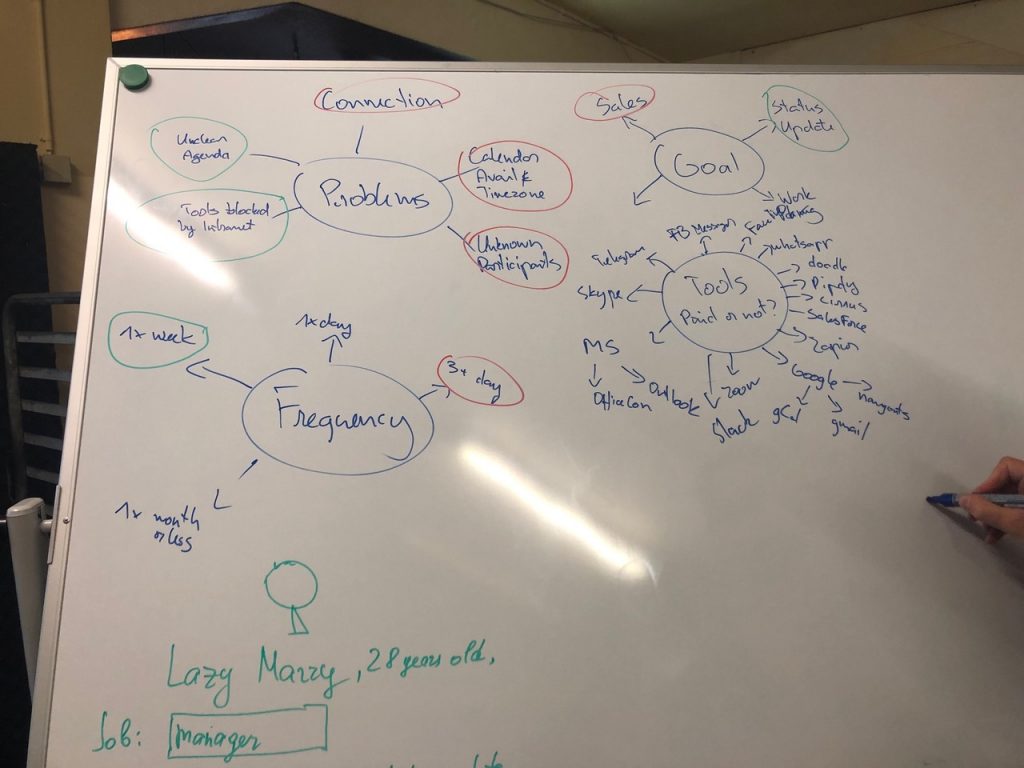 Connection
Unclear
Agenda
Tools blocked
by Intranet
Problems
Calendar
Avail &
Timezone
Unknown
Participants
Sales
Status
Update
Goal
Work
Planning
Telegram
FB Messenger
whatsapp
doodle
Skype
Tools
Paid or not?
Salesforce
Zapier
MS
Office Com
Outlook
Zoom
Slack
Google
Hangouts
gCal
gmail
1x week
1x day
3+ day
Frequency
1x month
or less
Lazy Marry, 28 years old,
Job: manager